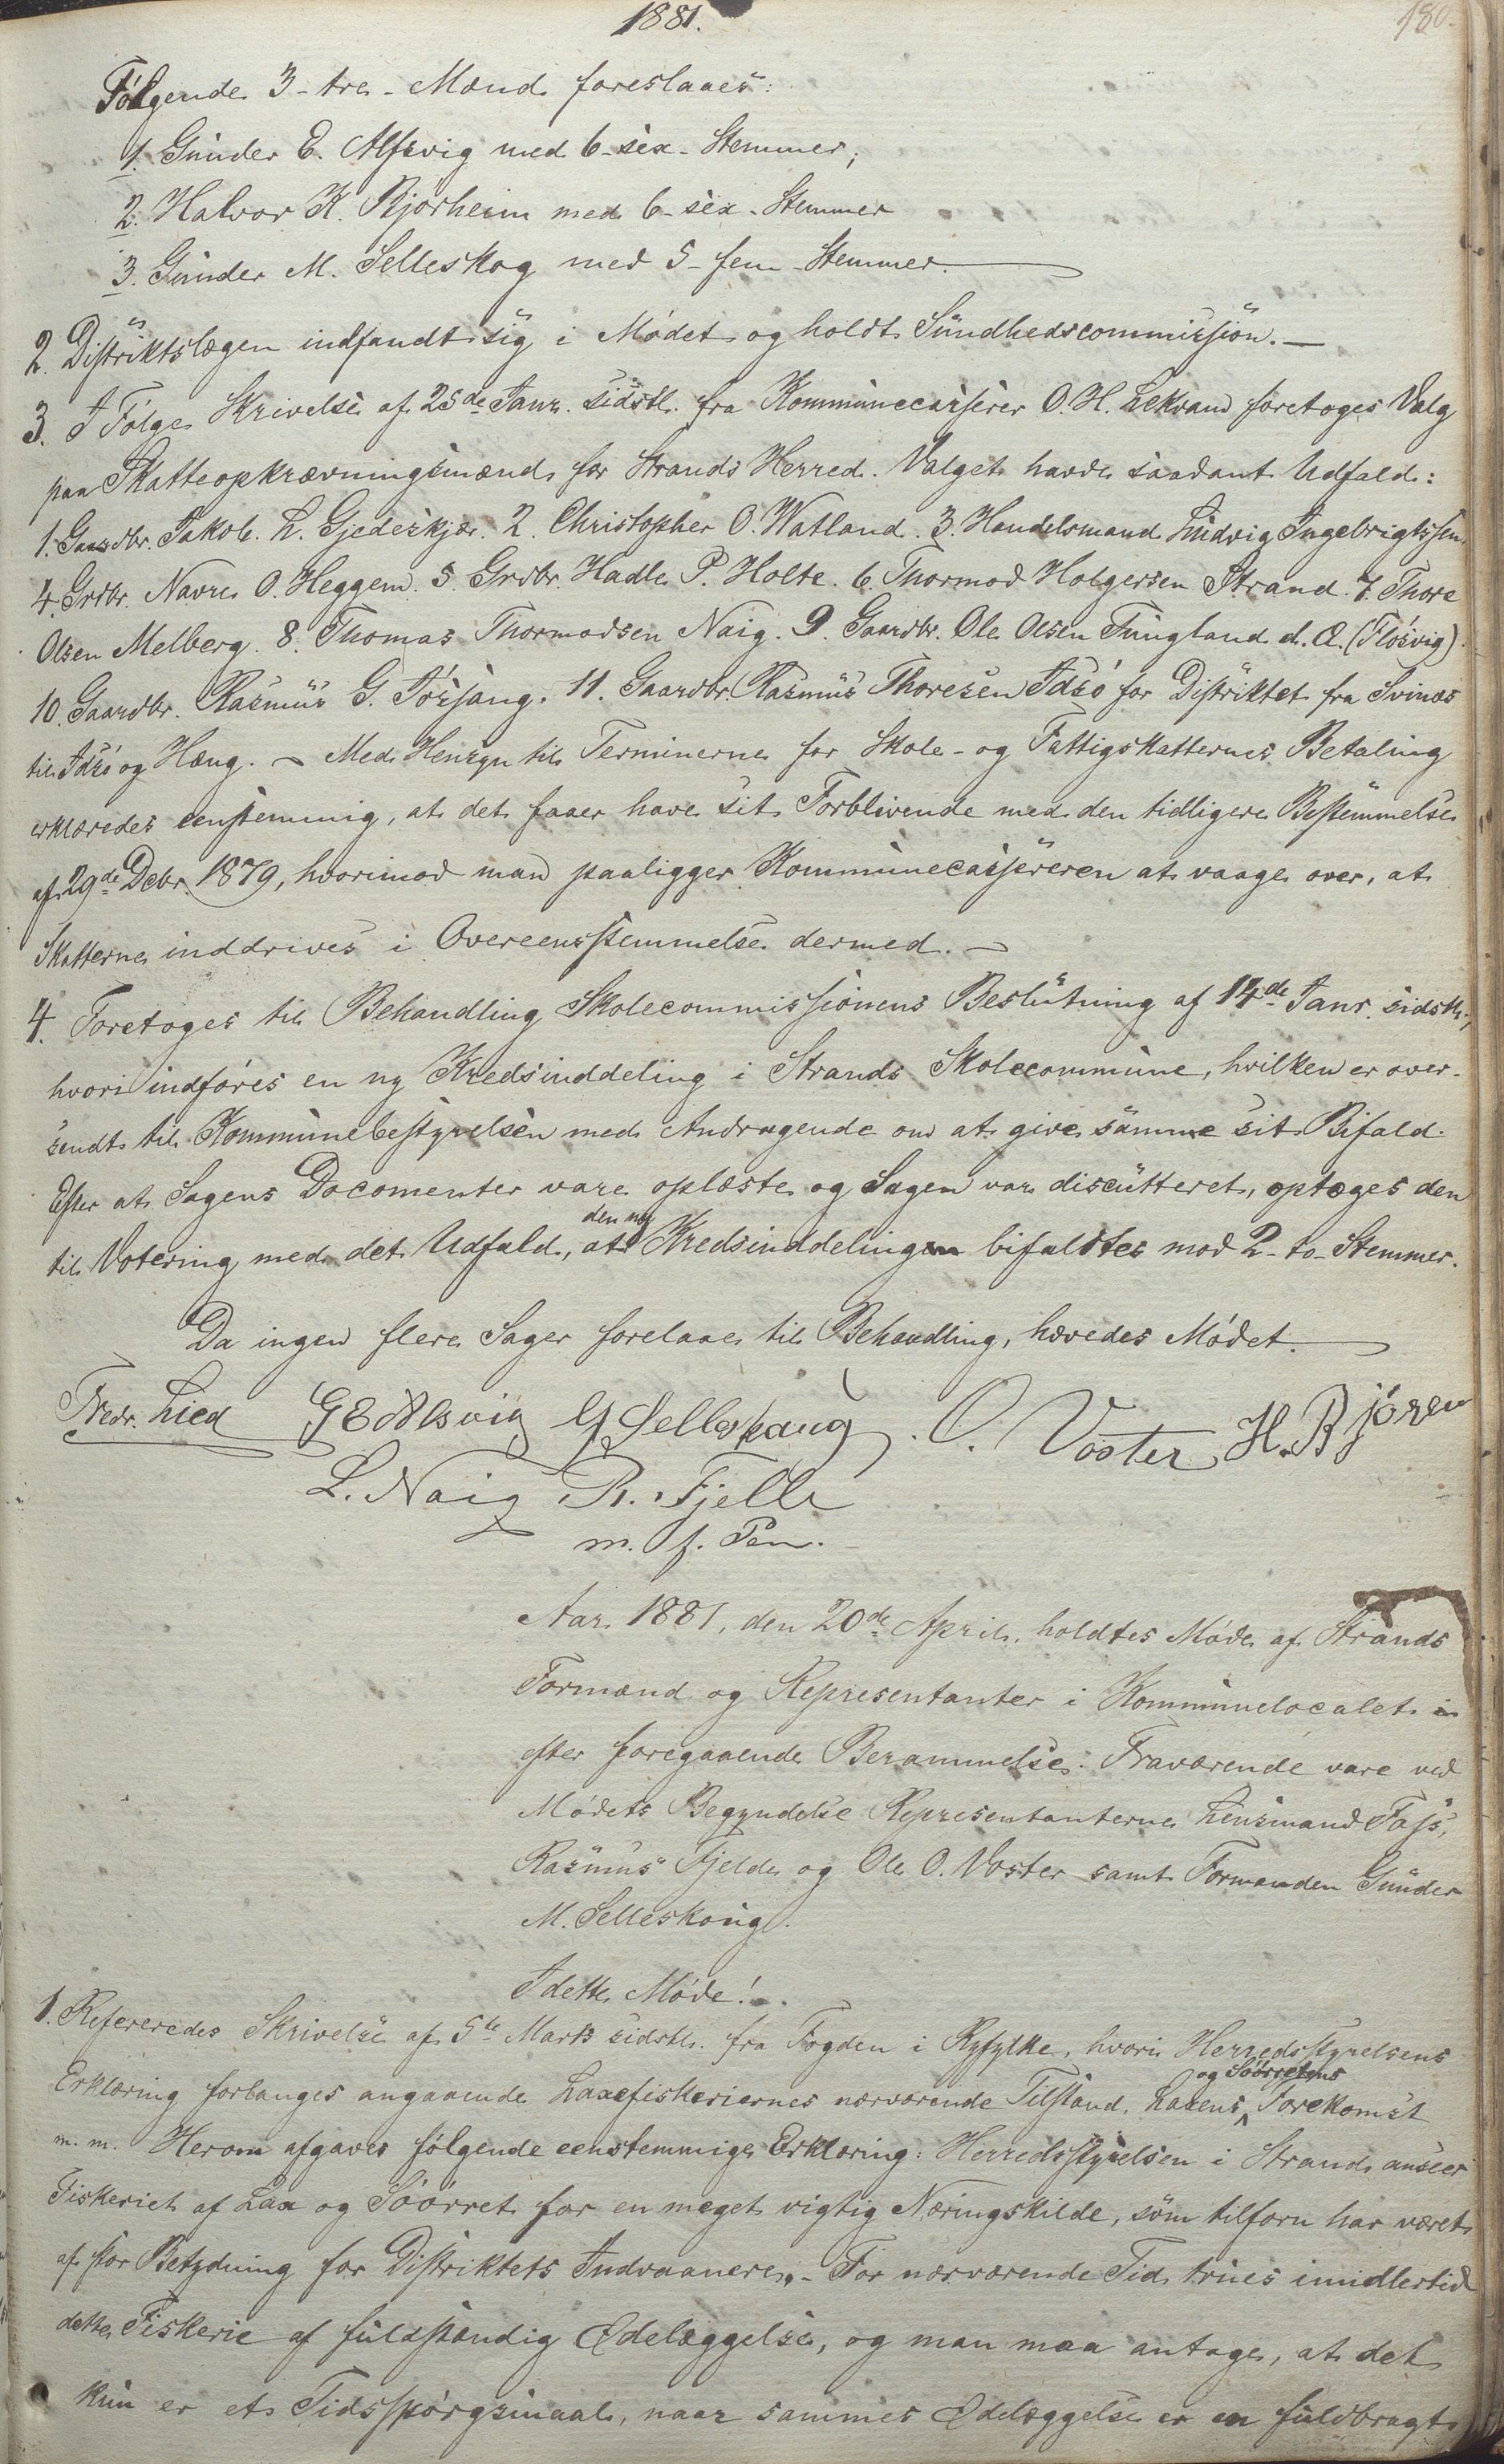 1881.
180.
Følgende 3 - tre - Mænd foreslaaes:
1. Gunder E. Alsvig med 6 - sex - Stemmer,
2. Halvor K. Bjørheim med 6 - sex - Stemmer
3. Gunder M. Selleskog med 5 - fem - Stemmer.
2. Distriktslægen indfandt sig i Mødet og holdt Sundhedscommission. —
3. I Følge Skrivelse af 25de Janr. sidstl. fra Kommunecasserer O. H. Lekvam foretoges Valg
paa Skatteopkrævningsmænd for Strands Herred. Valget havde saadant Udfald:
1. Gaardbr. Jakob L. Gjedeskjær. 2. Christopher O. Watland. 3. Handelsmand Ludvig Ingebrigtssen.
4. Grdbr. Navre O. Heggem. 5. Grdbr. Hadle P. Holte. 6. Thormod Holgersen Strand. 7. Thore
Olsen Melberg. 8. Thomas Thormodsen Naig. 9. Gaardbr. Ole Olsen Tungland d. Æ. (Fløsvig).
10. Gaardbr. Rasmus G. Jørsang. 11. Gaardbr. Rasmus Thoresen Idsø for Distriktet fra Svinæs
til Idsø og Hæng. — Med Hensyn til Terminerne for Skole- og Fattigskatternes Betaling
erklæredes eenstemmig, at det faaer have sit Forblivende med den tidligere Bestemmelse
af 29de Debr. 1879, hvorimod man paaligger Kommunecassereren at vaage over, at
Skatterne inddrives i Overeensstemmelse dermed. —
4. Foretoges til Behandling Skolecommissionens Beslutning af 14de Janr. sidstl.,
hvori indføres en ny Kredsinddeling i Strands Skolecommune, hvilken er over-
sendt til Kommunebestyrelsen med Andragende om at give samme sit Bifald.
Efter at Sagens Documenter vare oplæste og Sagen var discutteret, optoges den
til Votering med det Udfald, at den ny Kredsinddeling bifaldtes mod 2 - to - Stemmer.
Da ingen flere Sager forelaae til Behandling, hævedes Mødet.
Fredr. Lied G E Alsvig G Selleskaug O. Voster H. Bjøren
L. Naig R. Fjelle
m. f. Pen.
Aar 1881, den 20de April, holdtes Møde af Strands
Formænd og Repræsentanter i Kommunelocalet
efter foregaaende Berammelse. Fraværende vare ved
Mødets Begyndelse Repræsentanterne Lensmand Fass,
Rasmus Fjelde og Ole O. Voster samt Formanden Gunder
M. Selleskoug.
I dette Møde!
1. Refereredes Skrivelse af 5te Marts sidstl. fra Fogden i Ryfylke, hvori Herredsstyrelsens
Erklæring forlanges angaaende Laxefiskeriernes nærværende Tilstand, Laxens og Søørretens Forekomst
m. m. Herom afgaves følgende eenstemmige Erklæring: Herredsstyrelsen i Strand anseer
Fiskeriet af Lax og Søørret for en meget vigtig Næringskilde, som tilforn har været
af stor Betydning for Distriktets Indvaanere. - For nærværende Tid trues imidlertid
dette Fiskerie af fuldstændig Ødelæggelse, og man maa antage, at det
kun er et Tidsspørgsmaal, naar sammes Ødelæggelse er en fuldbragt